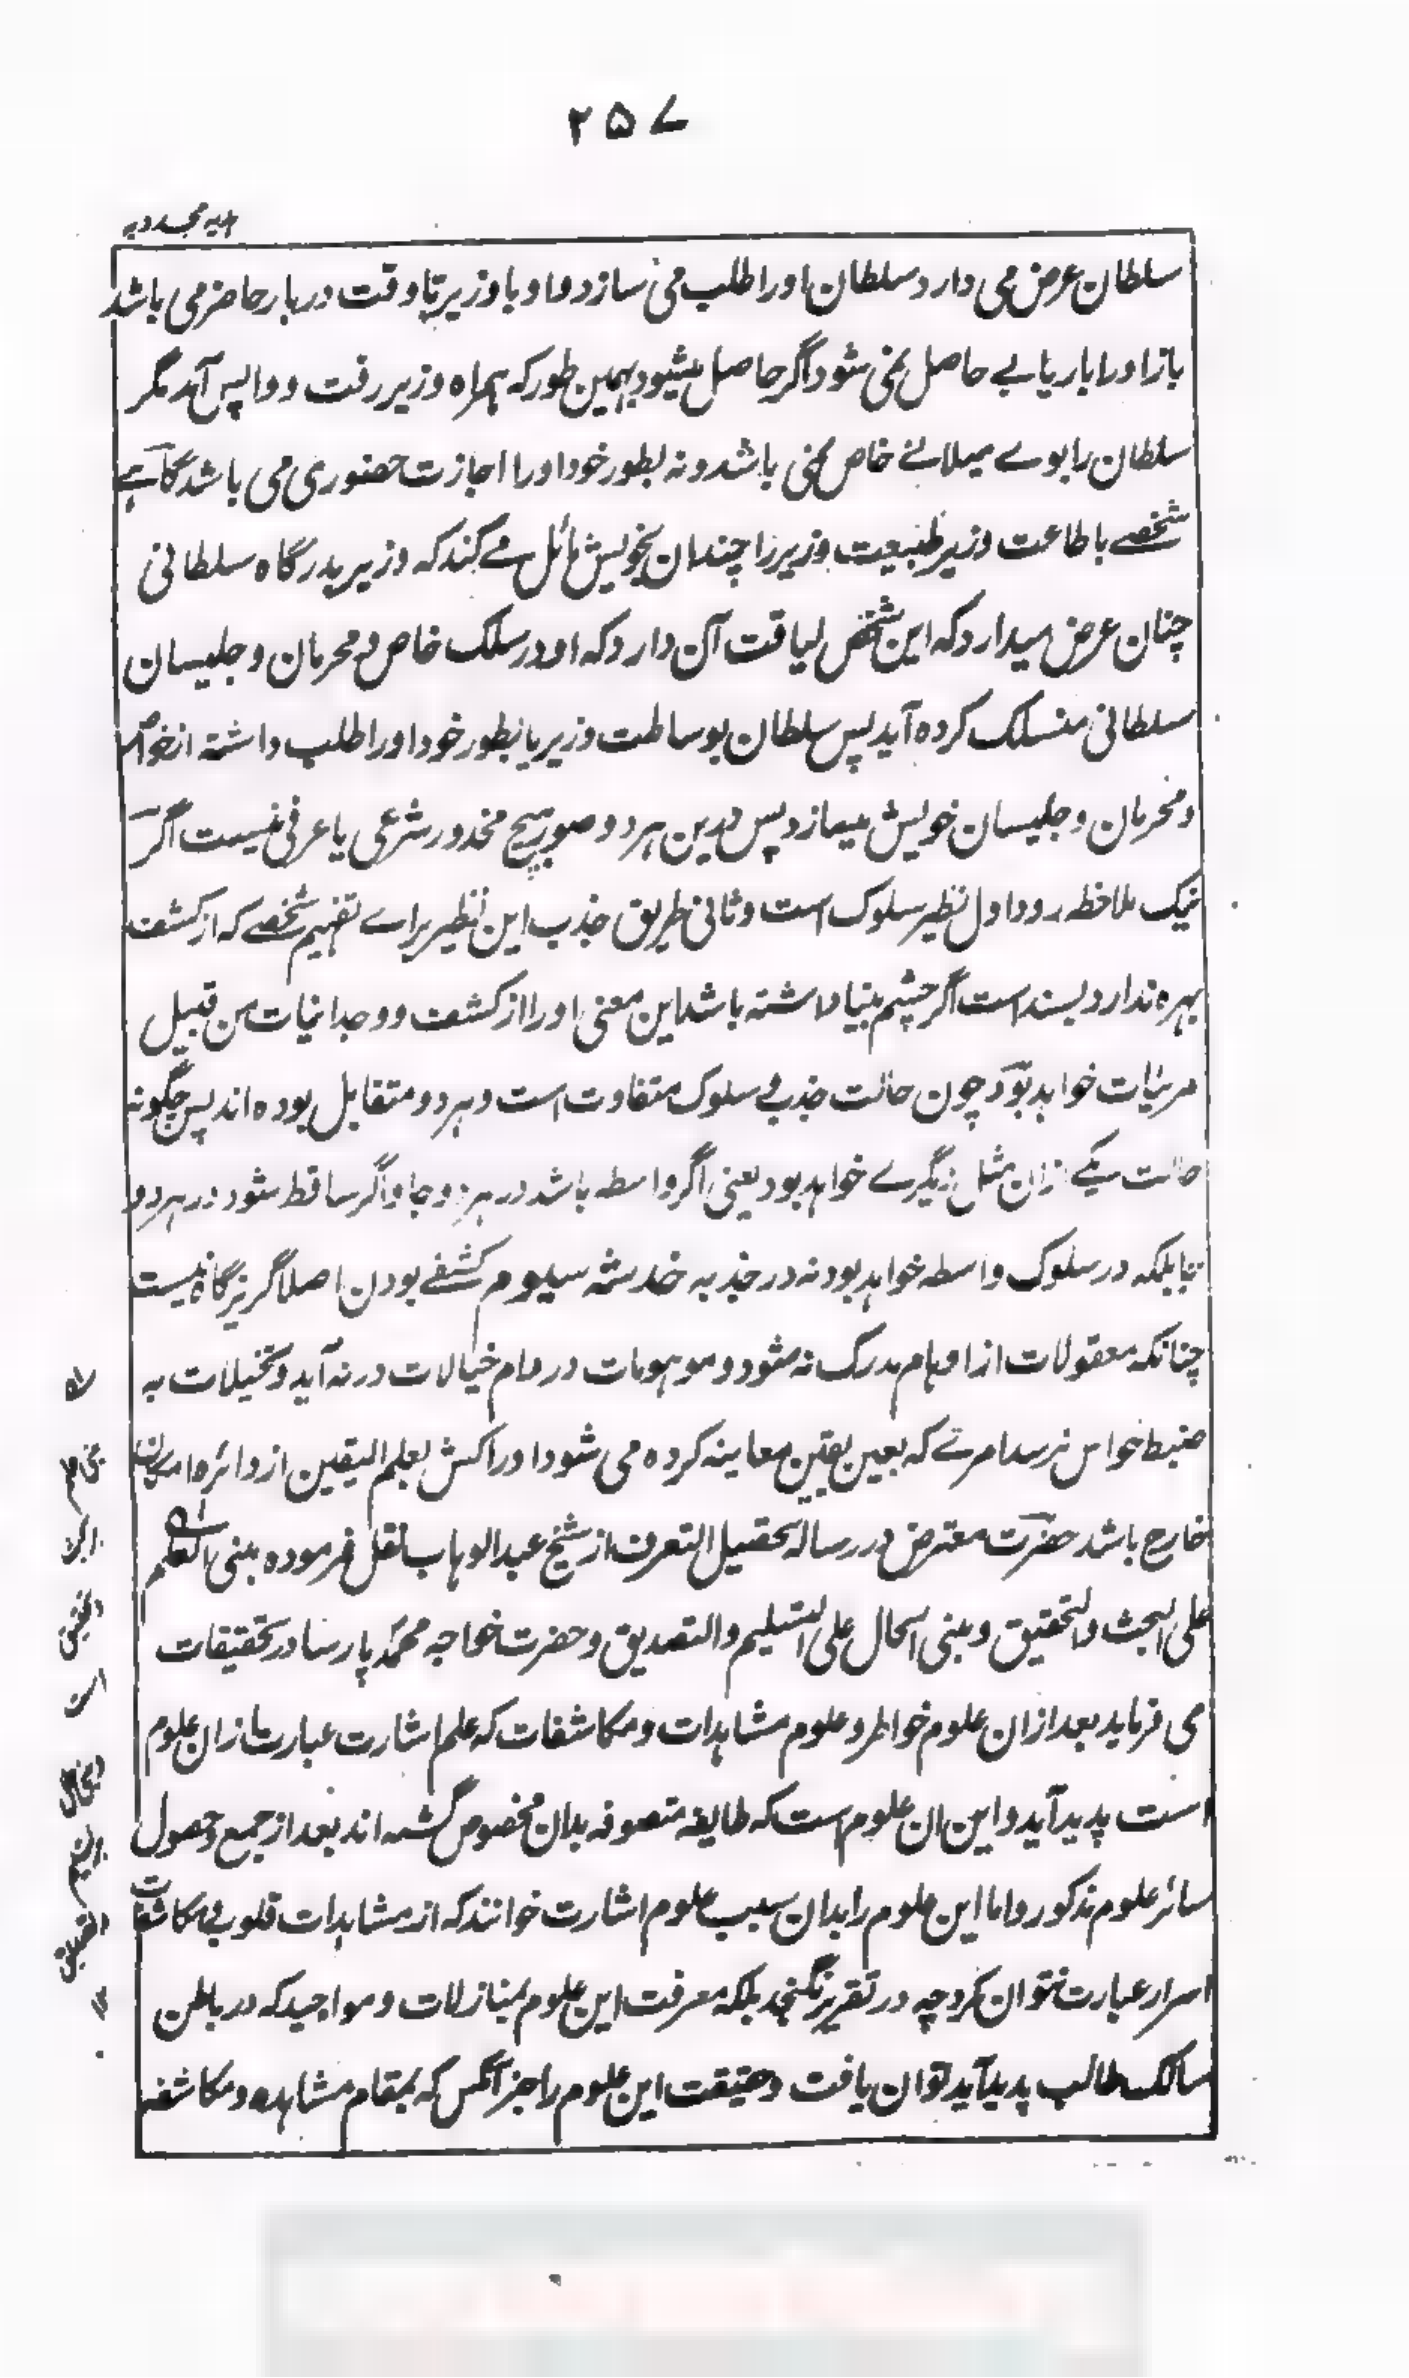 ۲۵۷
سلطان عرض می دارد سلطان اورا طلب می سازد و او با وزیر تا وقت دربار حاضر می باشد
باز اورا باریابے حاصل نمی شود اگر حاصل میشود بهمین طور که همراه وزیر رفت و واپس آمد مگر
سلطان را بوے میلانے خاص نمی باشد و نه بطور خود اورا اجازت حضوری می باشد گاہے
شخصے باطاعت وزیر طبیعت وزیر را چندان بخویش مائل مے کند که وزیر بدرگاه سلطانی
چنان عرض میدارد که این شخص لیاقت آن دارد که او در سلک خاص و محرمان و جلیسان
سلطانی منسلک کرده آید پس سلطان بوساطت وزیر یا بطور خود اورا طلب داشته از خواص
و محرمان و جلیسان خویش میسازد پس درین هر دو صور هیچ محذور شرعی یا عرفی نیست اگر
نیک ملاحظه رود اول نظیر سلوک است و ثانی طریق جذب این نظیر براے تفهیم شخصے که از کشف
بهره ندارد بسند است اگر چشم بینا داشته باشد این معنی اورا از کشف و وجدانیات من قبیل
مرئیات خواهد بود چون حالت جذب و سلوک متفاوت است و هر دو متقابل بوده اند پس چگونه
حالت یکے ازان مثل دیگرے خواهد بود یعنی اگر واسطه باشد در هر دو جا و اگر ساقط شود در هر دو
جا بلکه در سلوک واسطه خواهد بود نه در جذبه خدشه سیوم کشفے بودن اصلا گریزگاه نیست
چنانکه معقولات از اوهام مدرک نه شود و موهومات در دام خیالات در نه آید و تخیلات به
ضبط حواس نرسد امرے که بعین یقین معاینه کرده می شود ادراکش بعلم الیقین از دائره امکان
خارج باشد حضرت معترض در رساله تحصیل التعرف از شیخ عبدالوهاب نقل فرموده مبنی العلم
علی البحث والتحقیق و مبنی الحال علی التسلیم والتصدیق و حضرت خواجه محمد پارسا در تحقیقات
می فرماید بعد ازان علوم خواطر و علوم مشاهدات و مکاشفات که علم اشارت عبارت ازان علوم
است پدید آید و این آن علوم است که طایفه متصوفه بدان مخصوص گشته اند بعد از جمع و حصول
سائر علوم مذکور و اما این علوم را بدان سبب علوم اشارت خوانند که از مشاهدات قلوب و مکاشفات
اسرار عبارت نتوان کرد چه در تقریر نگنجد بلکه معرفت این علوم بمنازلات و مواجید که در باطن
سالک طالب پدید آید توان یافت و حقیقت این علوم را جز آنکس که بمقام مشاهده و مکاشفه